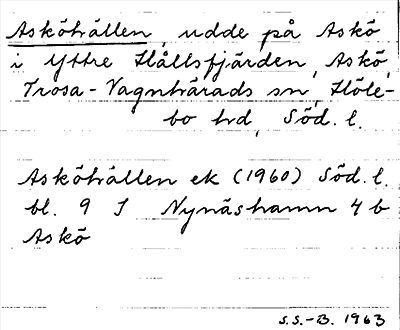 Asköhällen, udde på Askö
i Yttre Hållsfjärden, Askö,
Trosa-Vagnhärads sn, Höle-
bo hd, Söd. l.
Asköhällen ek (1960) Söd. l.
bl. 9 I Nynäshamn 4 b
Askö
S.S.-B. 1963